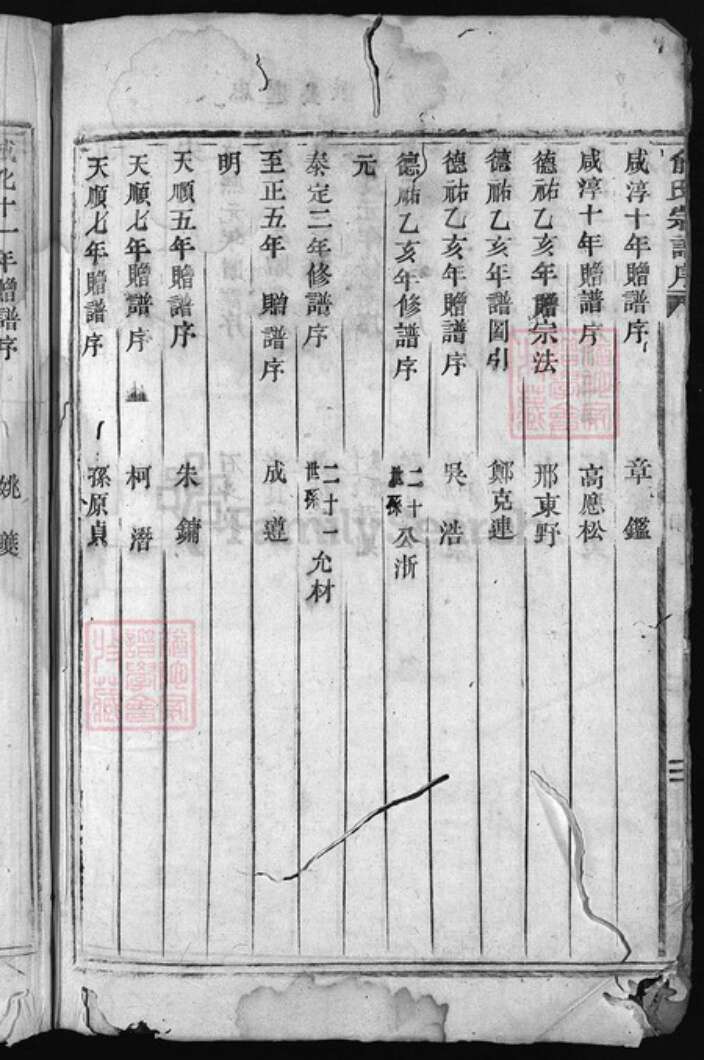 俞氏宗譜序
咸淳十年贈譜序 章鑑
咸淳十年贈譜序 高應松
德祐乙亥年贈宗法 邢東野
德祐乙亥年譜圖引 鄭克連
德祐乙亥年贈譜序 吳浩
德祐乙亥年修譜序 二十世孫公浙
元
泰定二年修譜序 二十一世孫允材
至正五年 贈譜序 成遵
明
天順五年贈譜序 朱鏞
天順七年贈譜序 柯潛
天順七年贈譜序 孫原貞
成化十一年贈譜序 姚夔
二